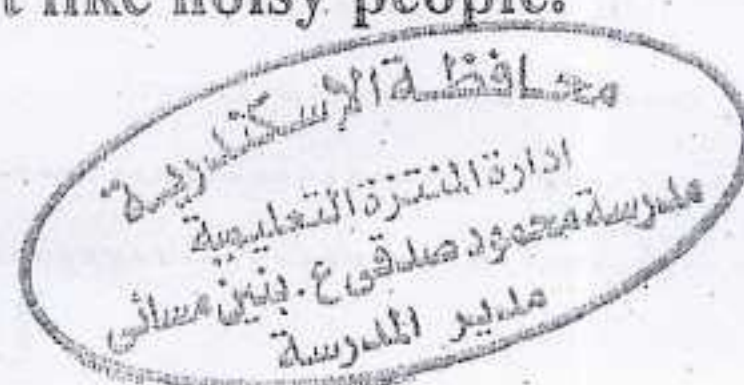 t like noisy people.
محافظة الإسكندرية
ادارة المنتزة التعليمية
مدرسة محمود صدقى ع. بنين مسائى
مدير المدرسة